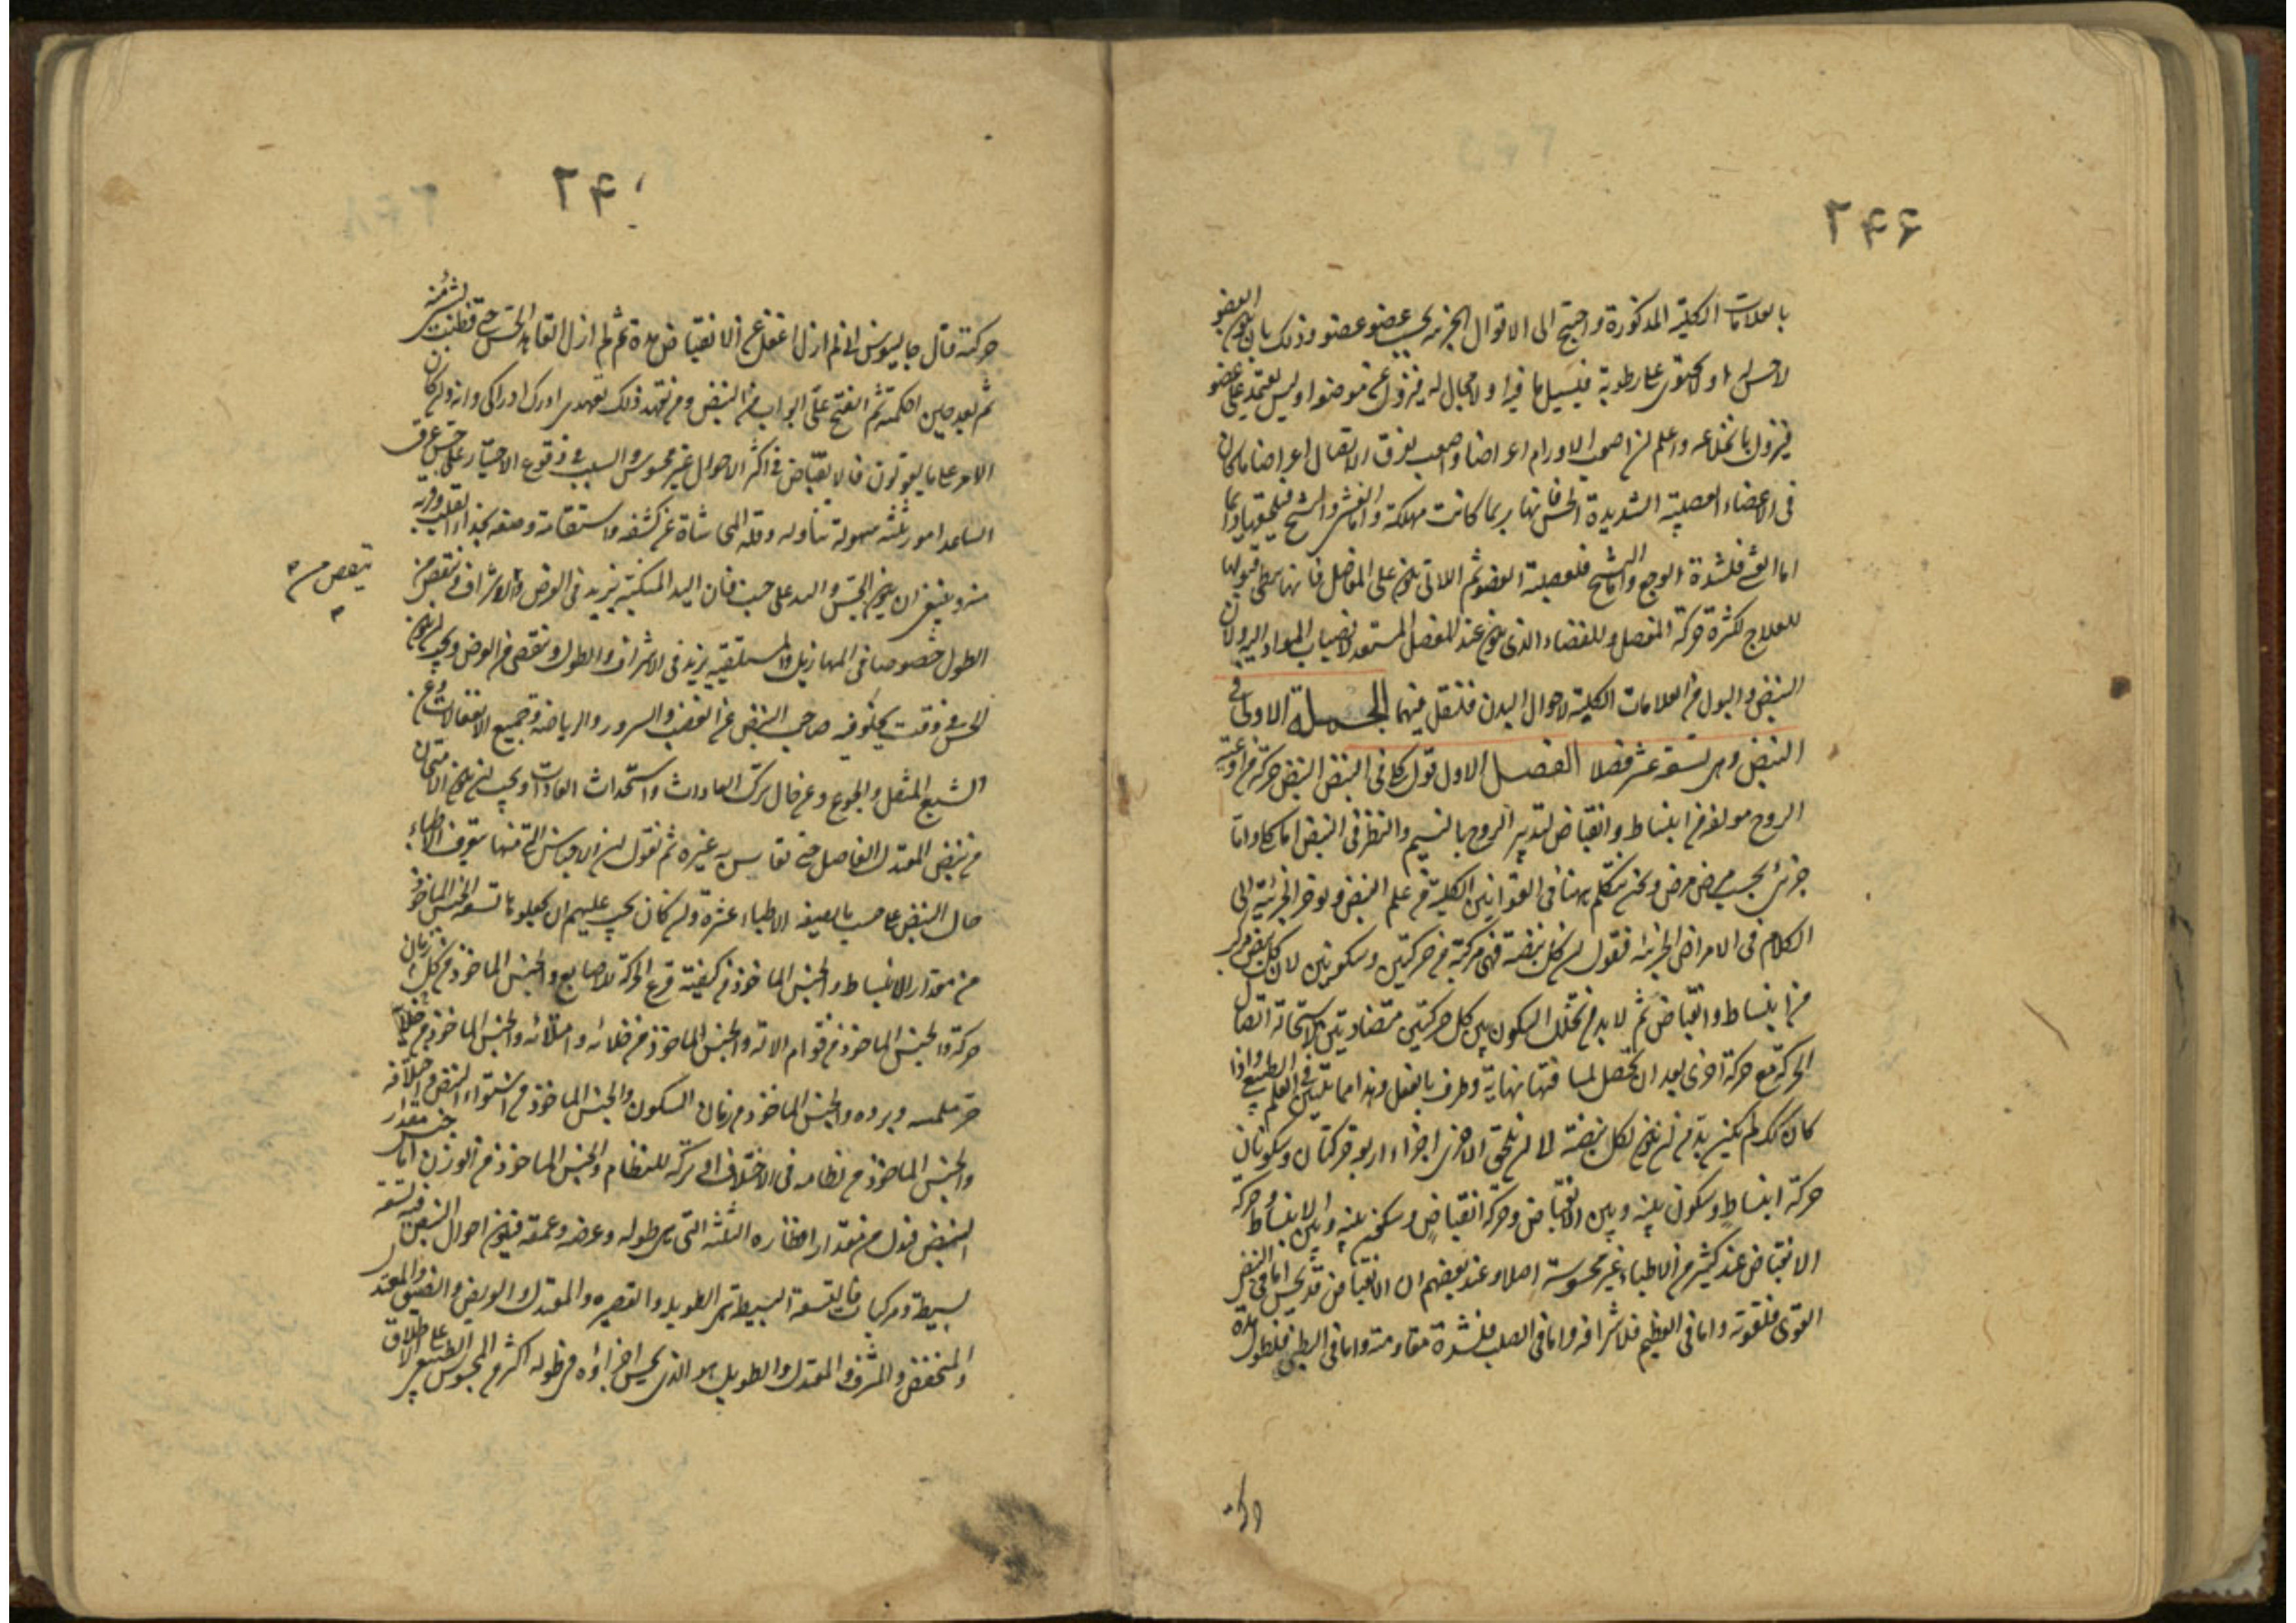 ۲۴۶
بالعلامات الكلية المذكورة واحتيج الى الاقوال الجزئية بحسب عضو عضو وذلك بان يكون العضو
لا حس له او لا يحتوى على رطوبة فيسيل ما فيه او لا مجال له فيزول عن موضعه او ليس يعتمد على عضو
فيزول بانخلاعه واعلم ان اصعب الاورام اعراضا واصعب تفرق الاتصال اعراضا ما كان
فى الاعضاء العصبية الشديدة الحس فانها ربما كانت مهلكة واما الغشى والتشنج فيلحقها دائما
اما الغشى فلشدة الوجع واما التشنج فلعصبية العضو ثم اللاتى يكون على المفاصل فانها يبطئ قبولها
للعلاج لكثرة حركة المفصل وللفضاء الذى يكون عند المفصل المستعد لانصباب المواد اليه ولان
النبض والبول من العلامات الكلية لاحوال البدن فلنقل فيهما الجملة الاولى فى
النبض وهى تسعة عشر فصلا الفصل الاول قول كلى فى النبض النبض حركة من اوعية
الروح مولفة من انبساط وانقباض لتدبير الروح بالنسيم والنظر فى النبض اما كلى واما
جزئى بحسب مرض مرض ونحن نتكلم ههنا فى القوانين الكلية من علم النبض ونوخر الجزئية الى
الكلام فى الامراض الجزئية فنقول ان كل نبضة فهى مركبة من حركتين وسكونين لان كل نبض مركب
من انبساط وانقباض ثم لا بد من تخلل السكون بين كل حركتين متضادتين لاستحالة اتصال
الحركة مع حركة اخرى بعد ان يحصل لمسافتها نهاية وطرف بالفعل وهذا مما يتبين فى العلم الطبيعى واذا
كان كذلك لم يكن بد من ان يكون لكل نبضة الى ان يلحق الاخرى اجزاء اربعة حركتان وسكونان
حركة انبساط وسكون بينه وبين الانقباض وحركة انقباض وسكون بينه وبين الانبساط وحركة
الانقباض عند كثير من الاطباء غير محسوسة اصلا وعند بعضهم ان الانقباض قد يحس اما فى النبض
القوى فلقوته واما فى العظيم فلاشرافه واما فى الصلب فلشدة مقاومته واما فى البطى فلطول مدة
۲۴
حركته قال جالينوس انى لم ازل اغفل عن الانقباض مدة ثم لم ازل اتعاهد الجس حتى فطنت لشئ منه
ثم بعد حين احكمته ثم انفتح على ابواب من النبض ومن تعهد ذلك تعهدى ادرك ادراكى وانه وان كان
الامر على ما يقولون فالانقباض فى اكثر الاحوال غير محسوس والسبب فى وقوع الاختيار على جس عرق
الساعد امور ثلثه سهولة تناوله وقلة المحاشاة عن كشفه واستقامة وضعه بحذاء القلب وقربه
منه وينبغى ان يكون الجس واليد على جنب فان اليد المتكئة يزيد فى العرض والاشراف وينقص من
ينقص من
الطول خصوصا فى المهازيل والمستلقية يزيد فى الاشراف والطول وينقص من العرض ويجب ان يكون
الجس فى وقت يخلو فيه صاحب النبض عن الغضب والسرور والرياضة وجميع الانفعالات وعن
الشبع المثقل والجوع وعن حال ترك العادات واستحداث العادات ويجب ان يكون الامتحان
من نبض المعتدل الفاضل حتى تقايس به غيره ثم نقول ان الاجناس التى منها يتعرف الاطباء
حال النبض على حسب ما يصفه الاطباء عشرة وان كان يجب عليهم ان يجعلوها تسعة الجنس الماخوذ
من مقدار الانبساط والجنس الماخوذ من كيفية قرع الحركة للاصابع والجنس الماخوذ من زمان كل
حركة والجنس الماخوذ من قوام الالة والجنس الماخوذ من خلائه وامتلائه والجنس الماخوذ من
حر ملمسه وبرده والجنس الماخوذ من زمان السكون والجنس الماخوذ من استواء النبض واختلافه
والجنس الماخوذ من نظامه فى الاختلاف او تركه للنظام والجنس الماخوذ من الوزن اما جنس مقدار
النبض فيدل من مقدار اقطاره الثلثه التى هى طوله وعرضه وعمقه فيكون احوال النبض فيه تسعه
بسيطة ومركبات فالتسعة البسيطة هى الطويل والقصير والمعتدل والعريض والضيق والمعتدل
والمنخفض والمشرف والمعتدل والطويل هو الذى يحس اجزاؤه فى طوله اكثر من المحسوس الطبيعى على الاطلاق